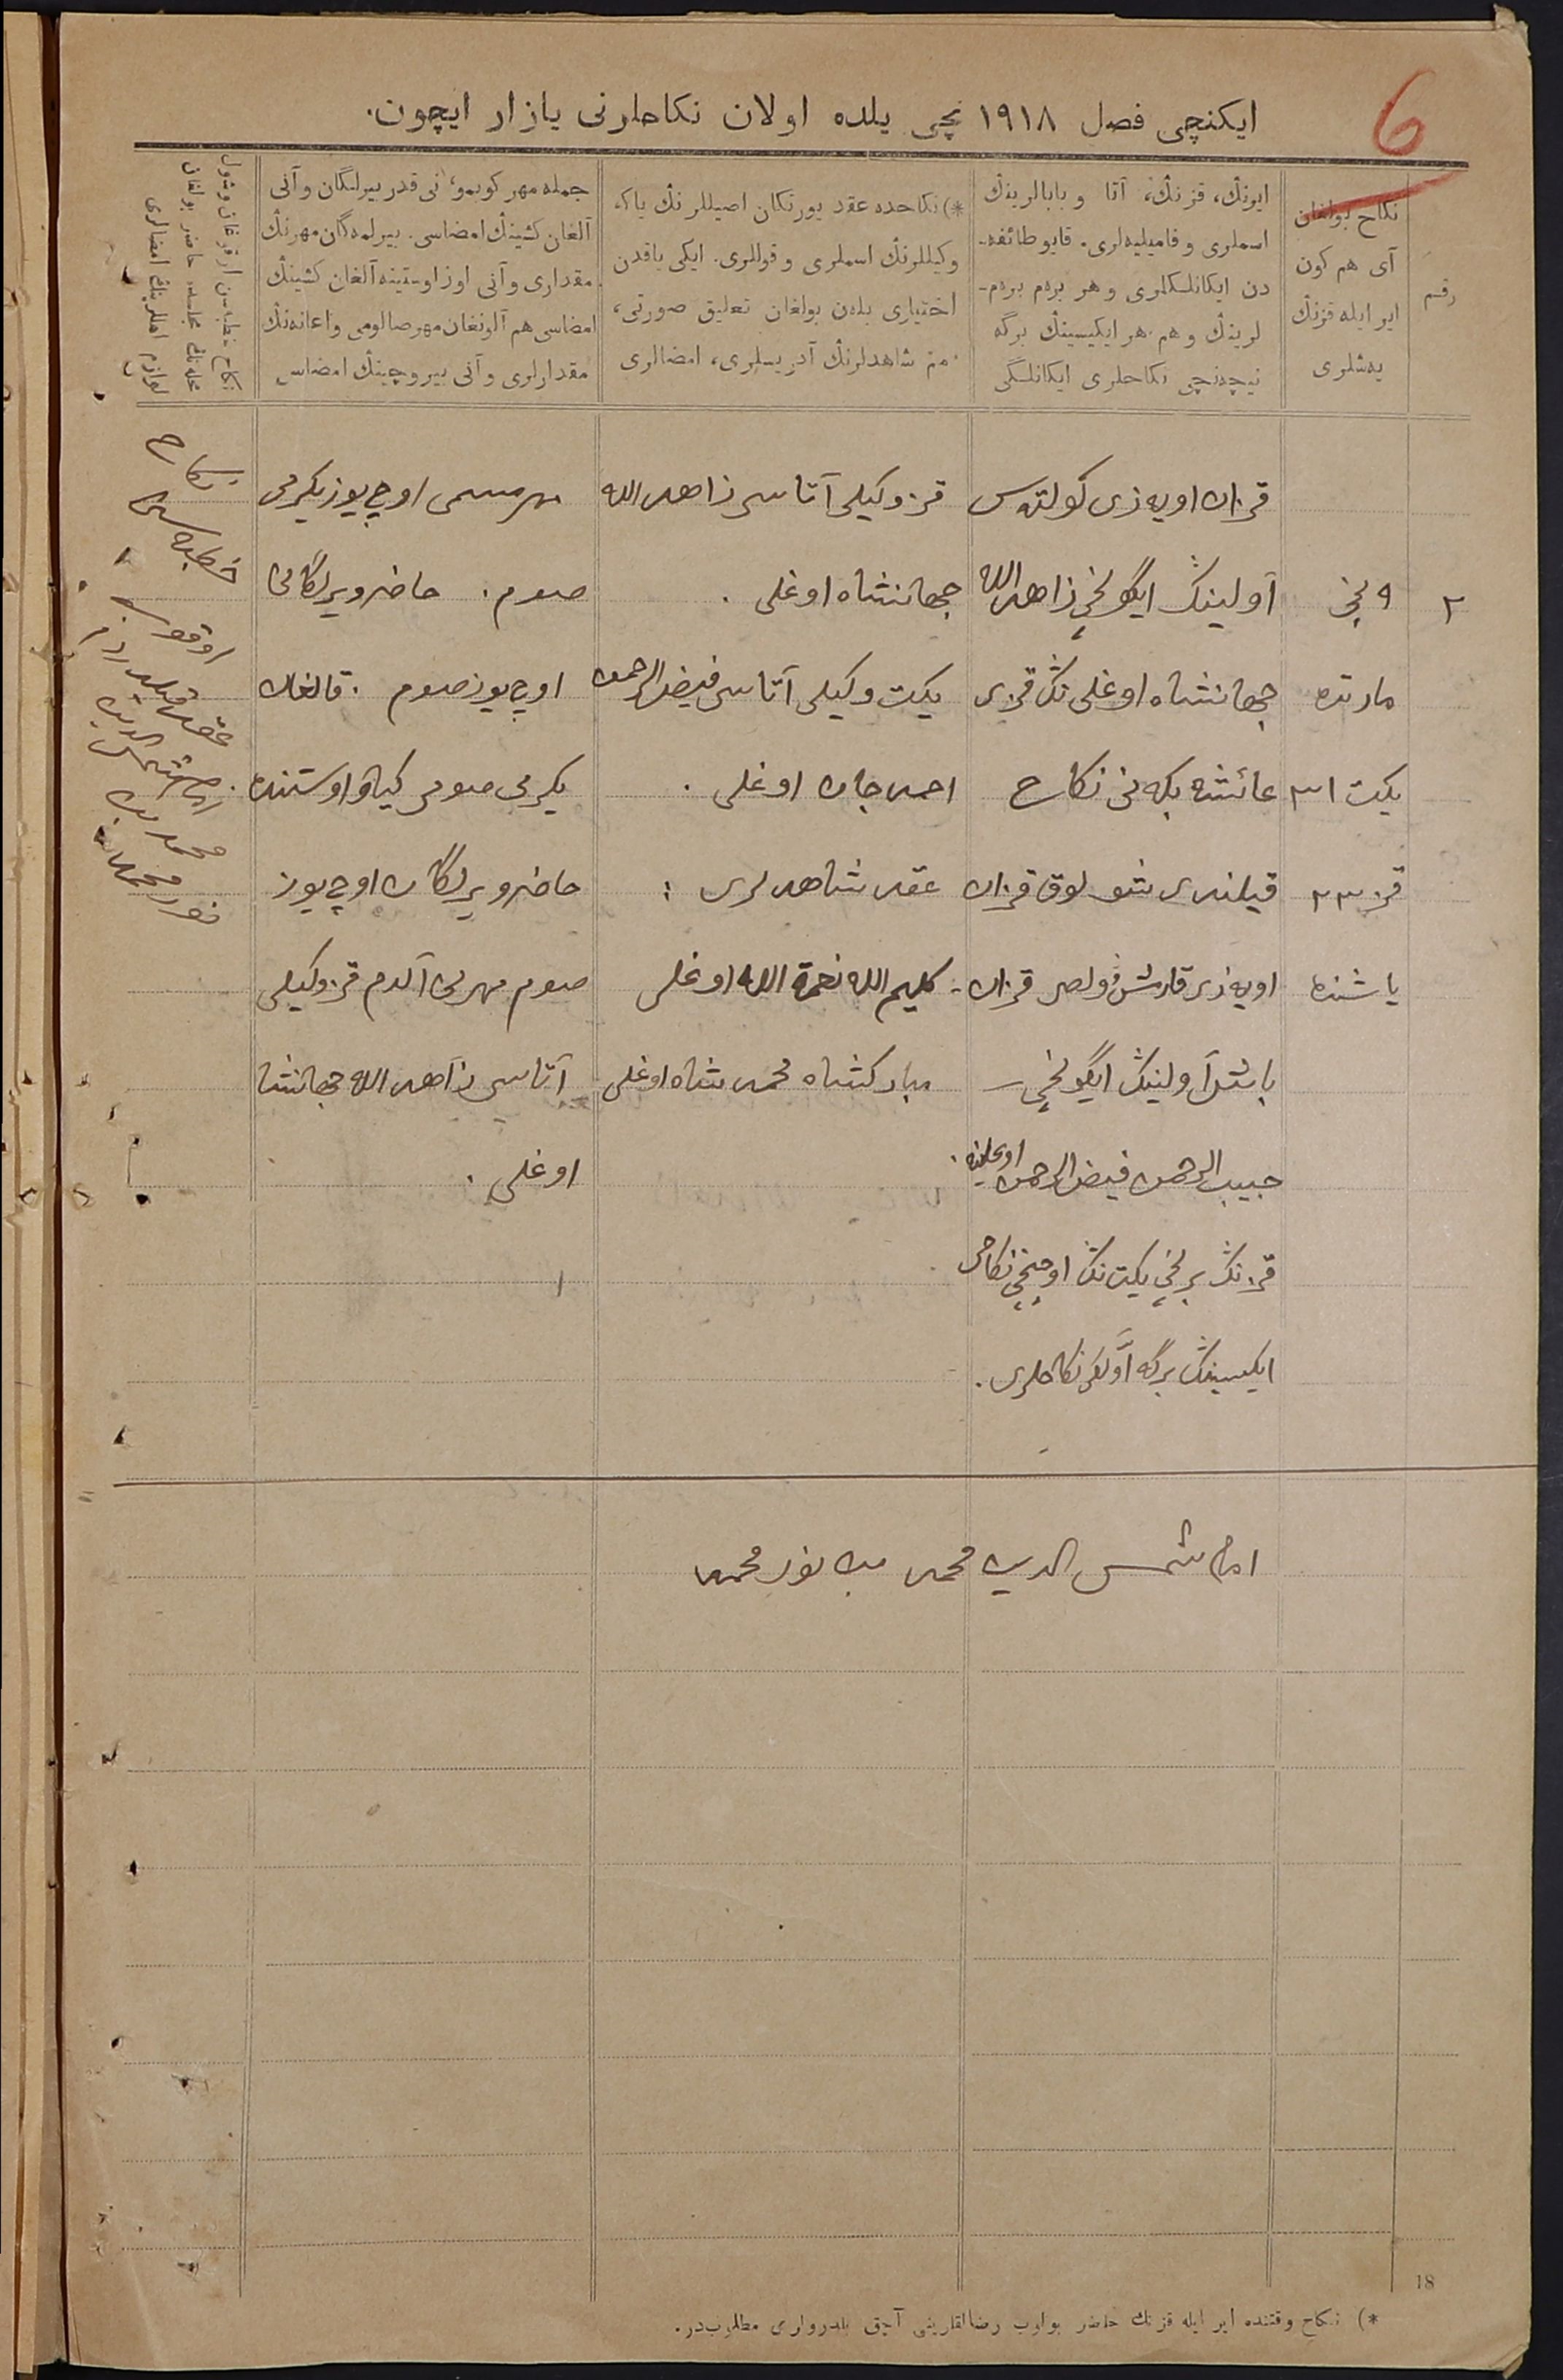 6
ایکنچی فصل ۱۹۱۸ نچی یلده اولان نکاحلرنی یازار ایچون.
رقم
نکاح بولغان
آی هم کون
ایر ایله قزنڭ
یەشلری
ایرنڭ، قزنڭ، آتا و بابالرینڭ
اسملری و فامیلیەلری. قایو طائفە-
دن ایکانلکلری و هر برەم برەم-
لرینڭ و هم هر ایکیسینڭ برگە
نیچەنچی نکاحلری ایکانلگی
*) نکاحدە عقد یورتکان اصیللرنڭ یاکە
وکیللرنڭ اسملری و قوللری. ایکی یاقدن
اختیاری بلەن بولغان تعلیق صورتی،
هم شاهدلرنڭ آدریسلری، امضالری
جملە مهر کوبمو، نی قدر بیرلگان و آنی
آلغان کشینڭ امضاسی. بیرلمەگان مهرنڭ
مقداری و آنی اوز اوستینە آلغان کشینڭ
امضاسی هم آلونغان مهر صالومی و اعانەنڭ
مقدارلری و آنی بیروچینڭ امضاسی
نکاح خطبەسن اوقوغان و شول
محلەنڭ مجلسدە حاضر بولغان
لوازم اهللرینڭ امضالری
۲
۹ نچی
مارتدە
یکت ۳۱
قز ۲۳
یاشندە
قزان اویەزی کولتەس
آولینڭ ایگونچی زاهداللە
جهانشاه اوغلی نڭ قزی
عائشە بکەنی نکاح
قیلندی شولوق قزان
اویەزی قارش ولصی قزان-
باشی آولینڭ ایگونچی
حبیب الرحمن فیض الرحمن اوغلینە.
قزنڭ برنچی یکت نڭ اوچنچی نکاحی
ایکیسینڭ برگە اولگی نکاحلری.
قز وکیلی آتاسی زاهداللە
جهانشاه اوغلی.
یکت وکیلی آتاسی فیض الرحمن
احمدجان اوغلی.
عقد شاهدلری:
کلیم اللە نعمة اللە اوغلی
مبارکشاه محمدشاه اوغلی.
مهر مسمی اوچ یوز یکرمی
صوم. حاضر ویرلگانی
اوچ یوز صوم. قالغان
یکرمی صومی کیاو اوستندە
حاضر ویرلگان اوچ یوز
صوم مهرنی آلدم قز وکیلی
آتاسی زاهداللە جهانشا
اوغلی.
نکاح
خطبەسنی
اوقوب
عقد قیلدردم
امام شمس الدین
محمد بن
نور محمد
امام شمس الدین محمد بن نور محمد
18
*) نکاح وقتندە ایر ایلە قزنڭ حاضر بولوب رضالقلرینی آچق بلدرولری مطلوب در.